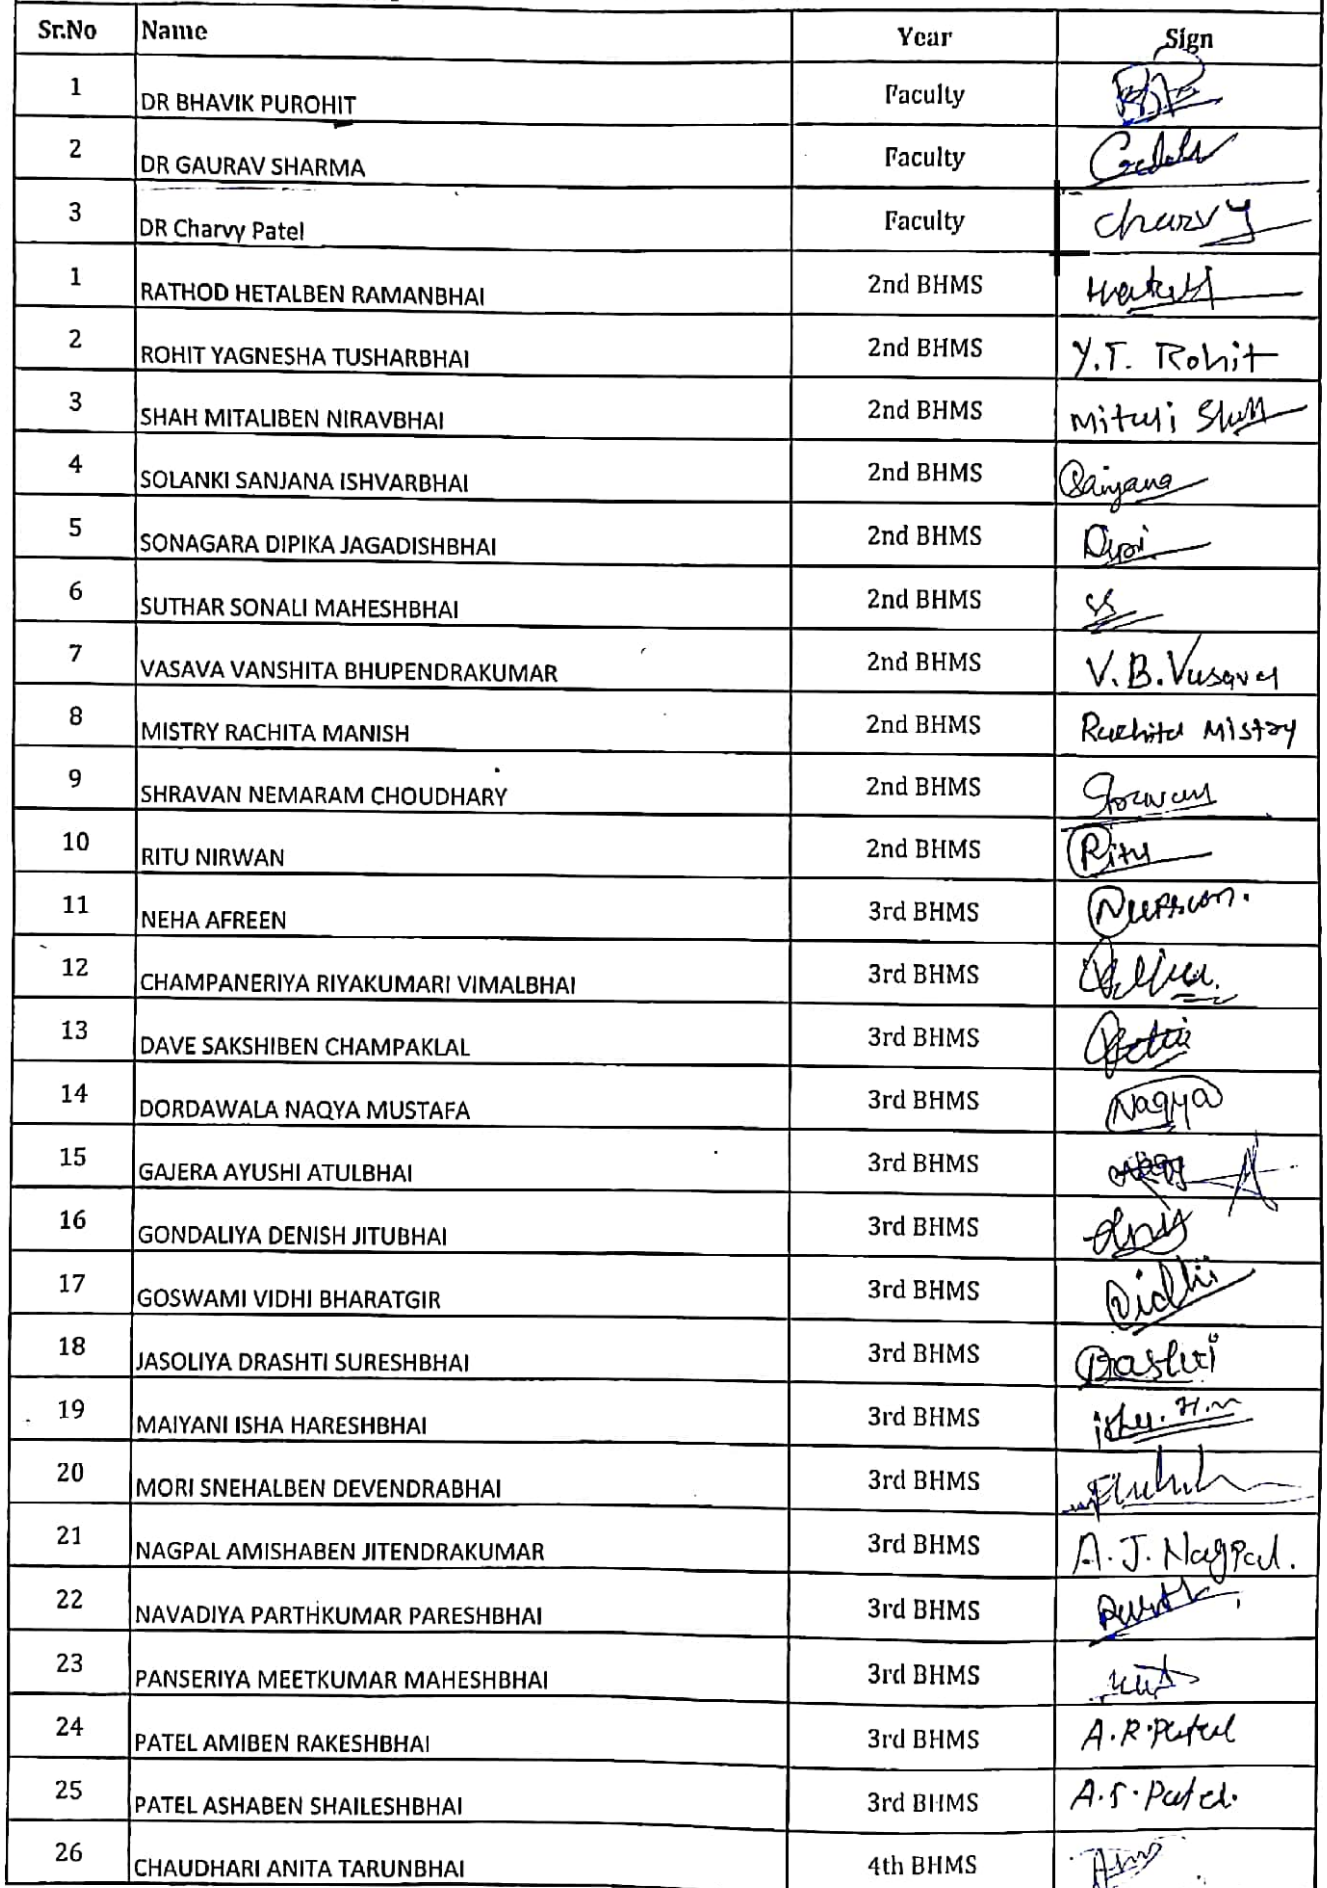 Sr.No Name Year Sign
1 DR BHAVIK PUROHIT Faculty
2 DR GAURAV SHARMA Faculty
3 DR Charvy Patel Faculty Charvy
1 RATHOD HETALBEN RAMANBHAI 2nd BHMS
2 ROHIT YAGNESHA TUSHARBHAI 2nd BHMS Y.T. Rohit
3 SHAH MITALIBEN NIRAVBHAI 2nd BHMS Mitali Shah
4 SOLANKI SANJANA ISHVARBHAI 2nd BHMS Sanjana
5 SONAGARA DIPIKA JAGADISHBHAI 2nd BHMS
6 SUTHAR SONALI MAHESHBHAI 2nd BHMS
7 VASAVA VANSHITA BHUPENDRAKUMAR 2nd BHMS V.B.Vasava
8 MISTRY RACHITA MANISH 2nd BHMS Rachita Mistry
9 SHRAVAN NEMARAM CHOUDHARY 2nd BHMS
10 RITU NIRWAN 2nd BHMS Ritu
11 NEHA AFREEN 3rd BHMS
12 CHAMPANERIYA RIYAKUMARI VIMALBHAI 3rd BHMS
13 DAVE SAKSHIBEN CHAMPAKLAL 3rd BHMS
14 DORDAWALA NAQYA MUSTAFA 3rd BHMS Naqya
15 GAJERA AYUSHI ATULBHAI 3rd BHMS
16 GONDALIYA DENISH JITUBHAI 3rd BHMS
17 GOSWAMI VIDHI BHARATGIR 3rd BHMS Vidhi
18 JASOLIYA DRASHTI SURESHBHAI 3rd BHMS
19 MAIYANI ISHA HARESHBHAI 3rd BHMS isha. H.M
20 MORI SNEHALBEN DEVENDRABHAI 3rd BHMS
21 NAGPAL AMISHABEN JITENDRAKUMAR 3rd BHMS A.J. Nagpal.
22 NAVADIYA PARTHKUMAR PARESHBHAI 3rd BHMS
23 PANSERIYA MEETKUMAR MAHESHBHAI 3rd BHMS
24 PATEL AMIBEN RAKESHBHAI 3rd BHMS A.R.Patel
25 PATEL ASHABEN SHAILESHBHAI 3rd BHMS A.S.Patel.
26 CHAUDHARI ANITA TARUNBHAI 4th BHMS